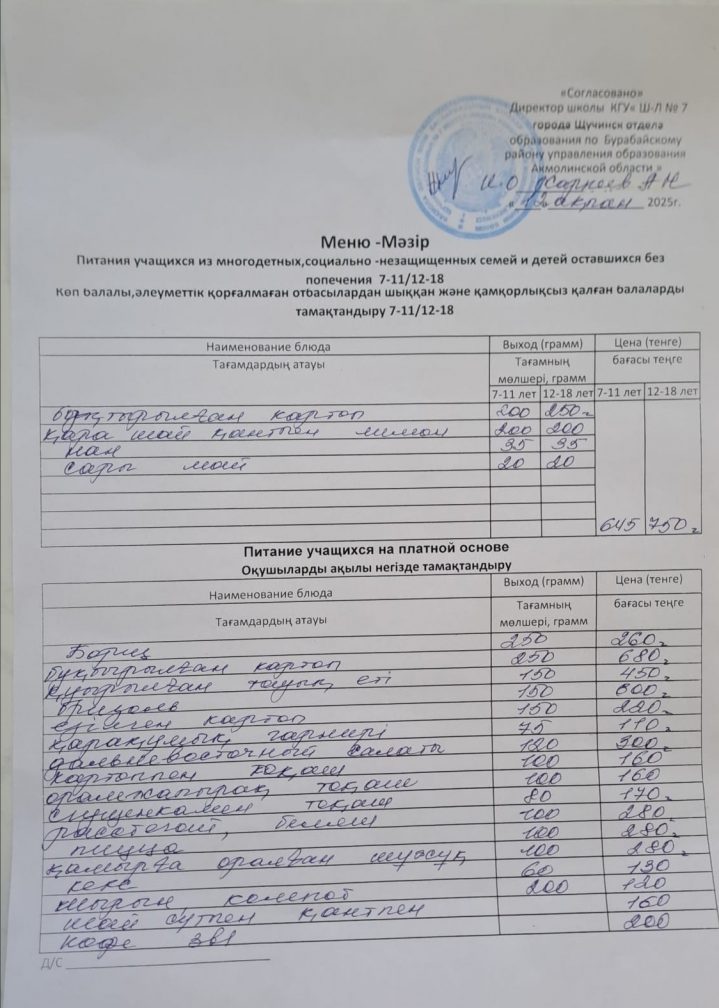 «Согласовано»
Директор школы КГУ« Ш-Л № 7
города Щучинск отдела
образования по Бурабайскому
району управления образования
Акмолинской области »
И.О. А Н
« 12 » ақпан 2025г.
Меню -Мәзір
Питания учащихся из многодетных,социально -незащищенных семей и детей оставшихся без
попечения 7-11/12-18
Көп балалы,әлеуметтік қорғалмаған отбасылардан шыққан және қамқорлықсыз қалған балаларды
тамақтандыру 7-11/12-18
Наименование блюда Выход (грамм) Цена (тенге)
Тағамдардың атауы Тағамның мөлшері, грамм бағасы теңге
7-11 лет 12-18 лет 7-11 лет 12-18 лет
бұқтырылған картоп 200 250г
қара шай қантпен лимон 200 200
нан 35 35
сары май 20 20
645 750г
Питание учащихся на платной основе
Оқушыларды ақылы негізде тамақтандыру
Наименование блюда Выход (грамм) Цена (тенге)
Тағамдардың атауы Тағамның мөлшері, грамм бағасы теңге
Борщ 250 260г
бұқтырылған картоп 250 680г
қуырылған тауық еті 150 450г
бризоль 150
езілген картоп 150 220г
қарақұмық гарнирі 75 110г
дальневосточный салаты 120 300г
картоппен тоқаш 100 160
орамжапырақ тоқаш 100 160
сгущенкамен тоқаш 80 170г
расстегай, беляш 100 280г
пицца 100 280г
қамырға оралған шұжық 100 280г
кекс 60 130
шырын, компот 200 120
шай сүтпен қантпен 160
кофе 3в1 200
Д/С